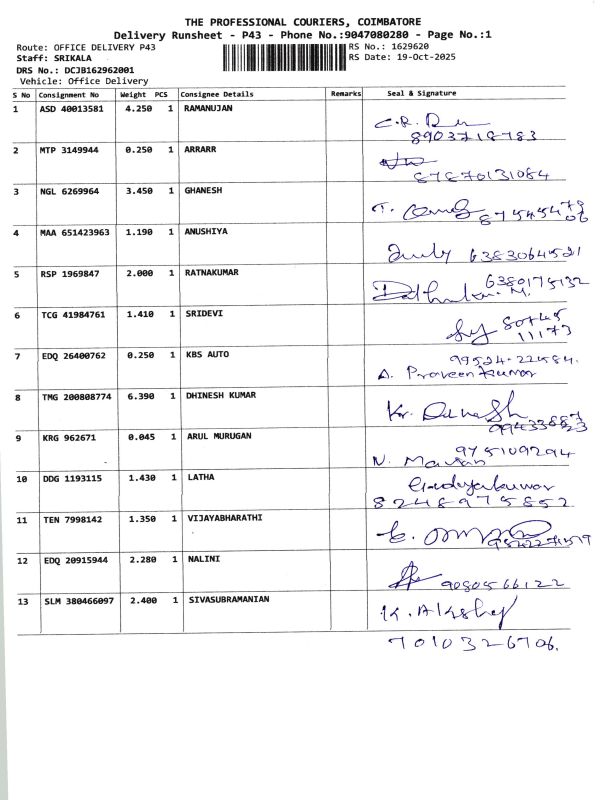 THE PROFESSIONAL COURIERS, COIMBATORE
Delivery Runsheet - P43 - Phone No.:9047080280 - Page No.:1
Route: OFFICE DELIVERY P43 RS No.: 1629620
Staff: SRIKALA RS Date: 19-Oct-2025
DRS No.: DCJB162962001
Vehicle: Office Delivery
S No Consignment No Weight PCS Consignee Details Remarks Seal & Signature
1 ASD 40013581 4.250 1 RAMANUJAN
8903718783
2 MTP 3149944 0.250 1 ARRARR
87870131084
3 NGL 6269964 3.450 1 GHANESH
4 MAA 651423963 1.190 1 ANUSHIYA
6383064521
5 RSP 1969847 2.000 1 RATNAKUMAR
6380175132
6 TCG 41984761 1.410 1 SRIDEVI
11173
7 EDQ 26400762 0.250 1 KBS AUTO
99524-22584.
A. Praveen Kumar
8 TMG 200808774 6.390 1 DHINESH KUMAR
9 KRG 962671 0.045 1 ARUL MURUGAN
975109294
N.
10 DDG 1193115 1.430 1 LATHA
8248975852
11 TEN 7998142 1.350 1 VIJAYABHARATHI
12 EDQ 20915944 2.280 1 NALINI
9080566122
13 SLM 380466097 2.400 1 SIVASUBRAMANIAN
K. Akshay
7010326706.